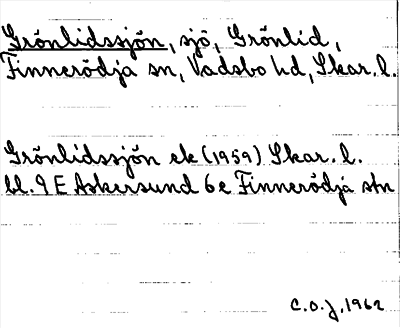 Grönlidssjön, sjö, Grönlid,
Finnerödja sn, Vadsbo hd, Skar. l.
Grönlidssjön ek (1959) Skar. l.
bl. 9 E Askersund 6 e Finnerödja stn
C.O.J. 1962